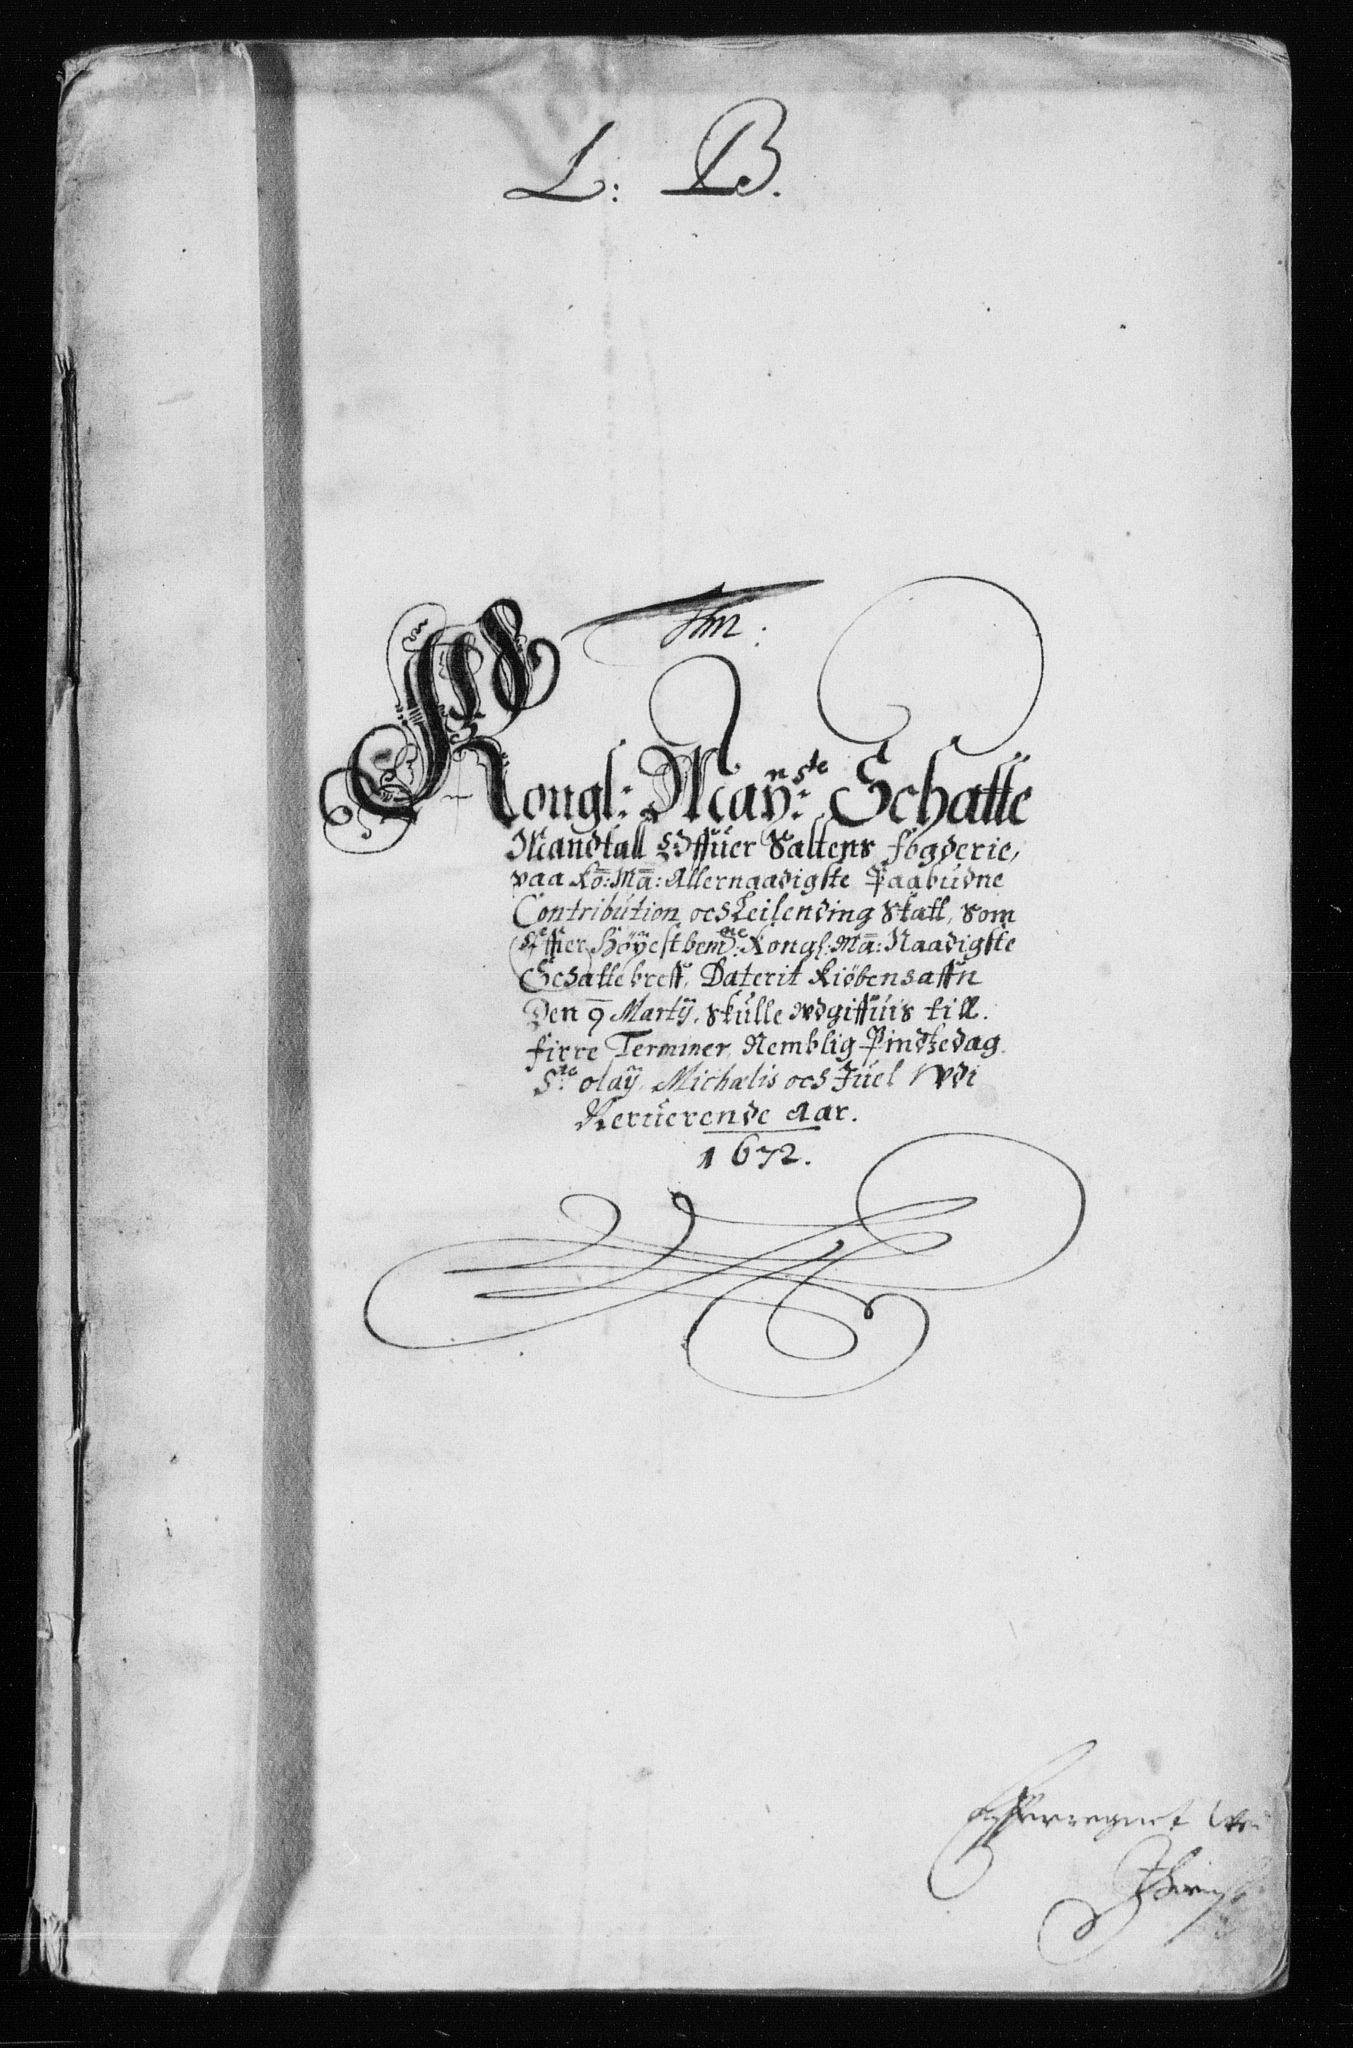 L: B.
Kongl: Mayn:ste Schatte
Mandtall Offuer Saltens fogderie,
paa Ko: Ma: Allernaadigste Paabudne
Contribution och Leilending Skatt, som
Effter Höyestbemte: Kongl: Ma: Naadigste
Schattebreff, Daterit Kiöbenhaffn
Den 9 Martij. Skulle Udgiffuis till
firre Terminer, Nemblig Pindtzedag
Ste: olaij, Michælis och Juel Udi
Neruerende Aar.
1672.
Efferregnet